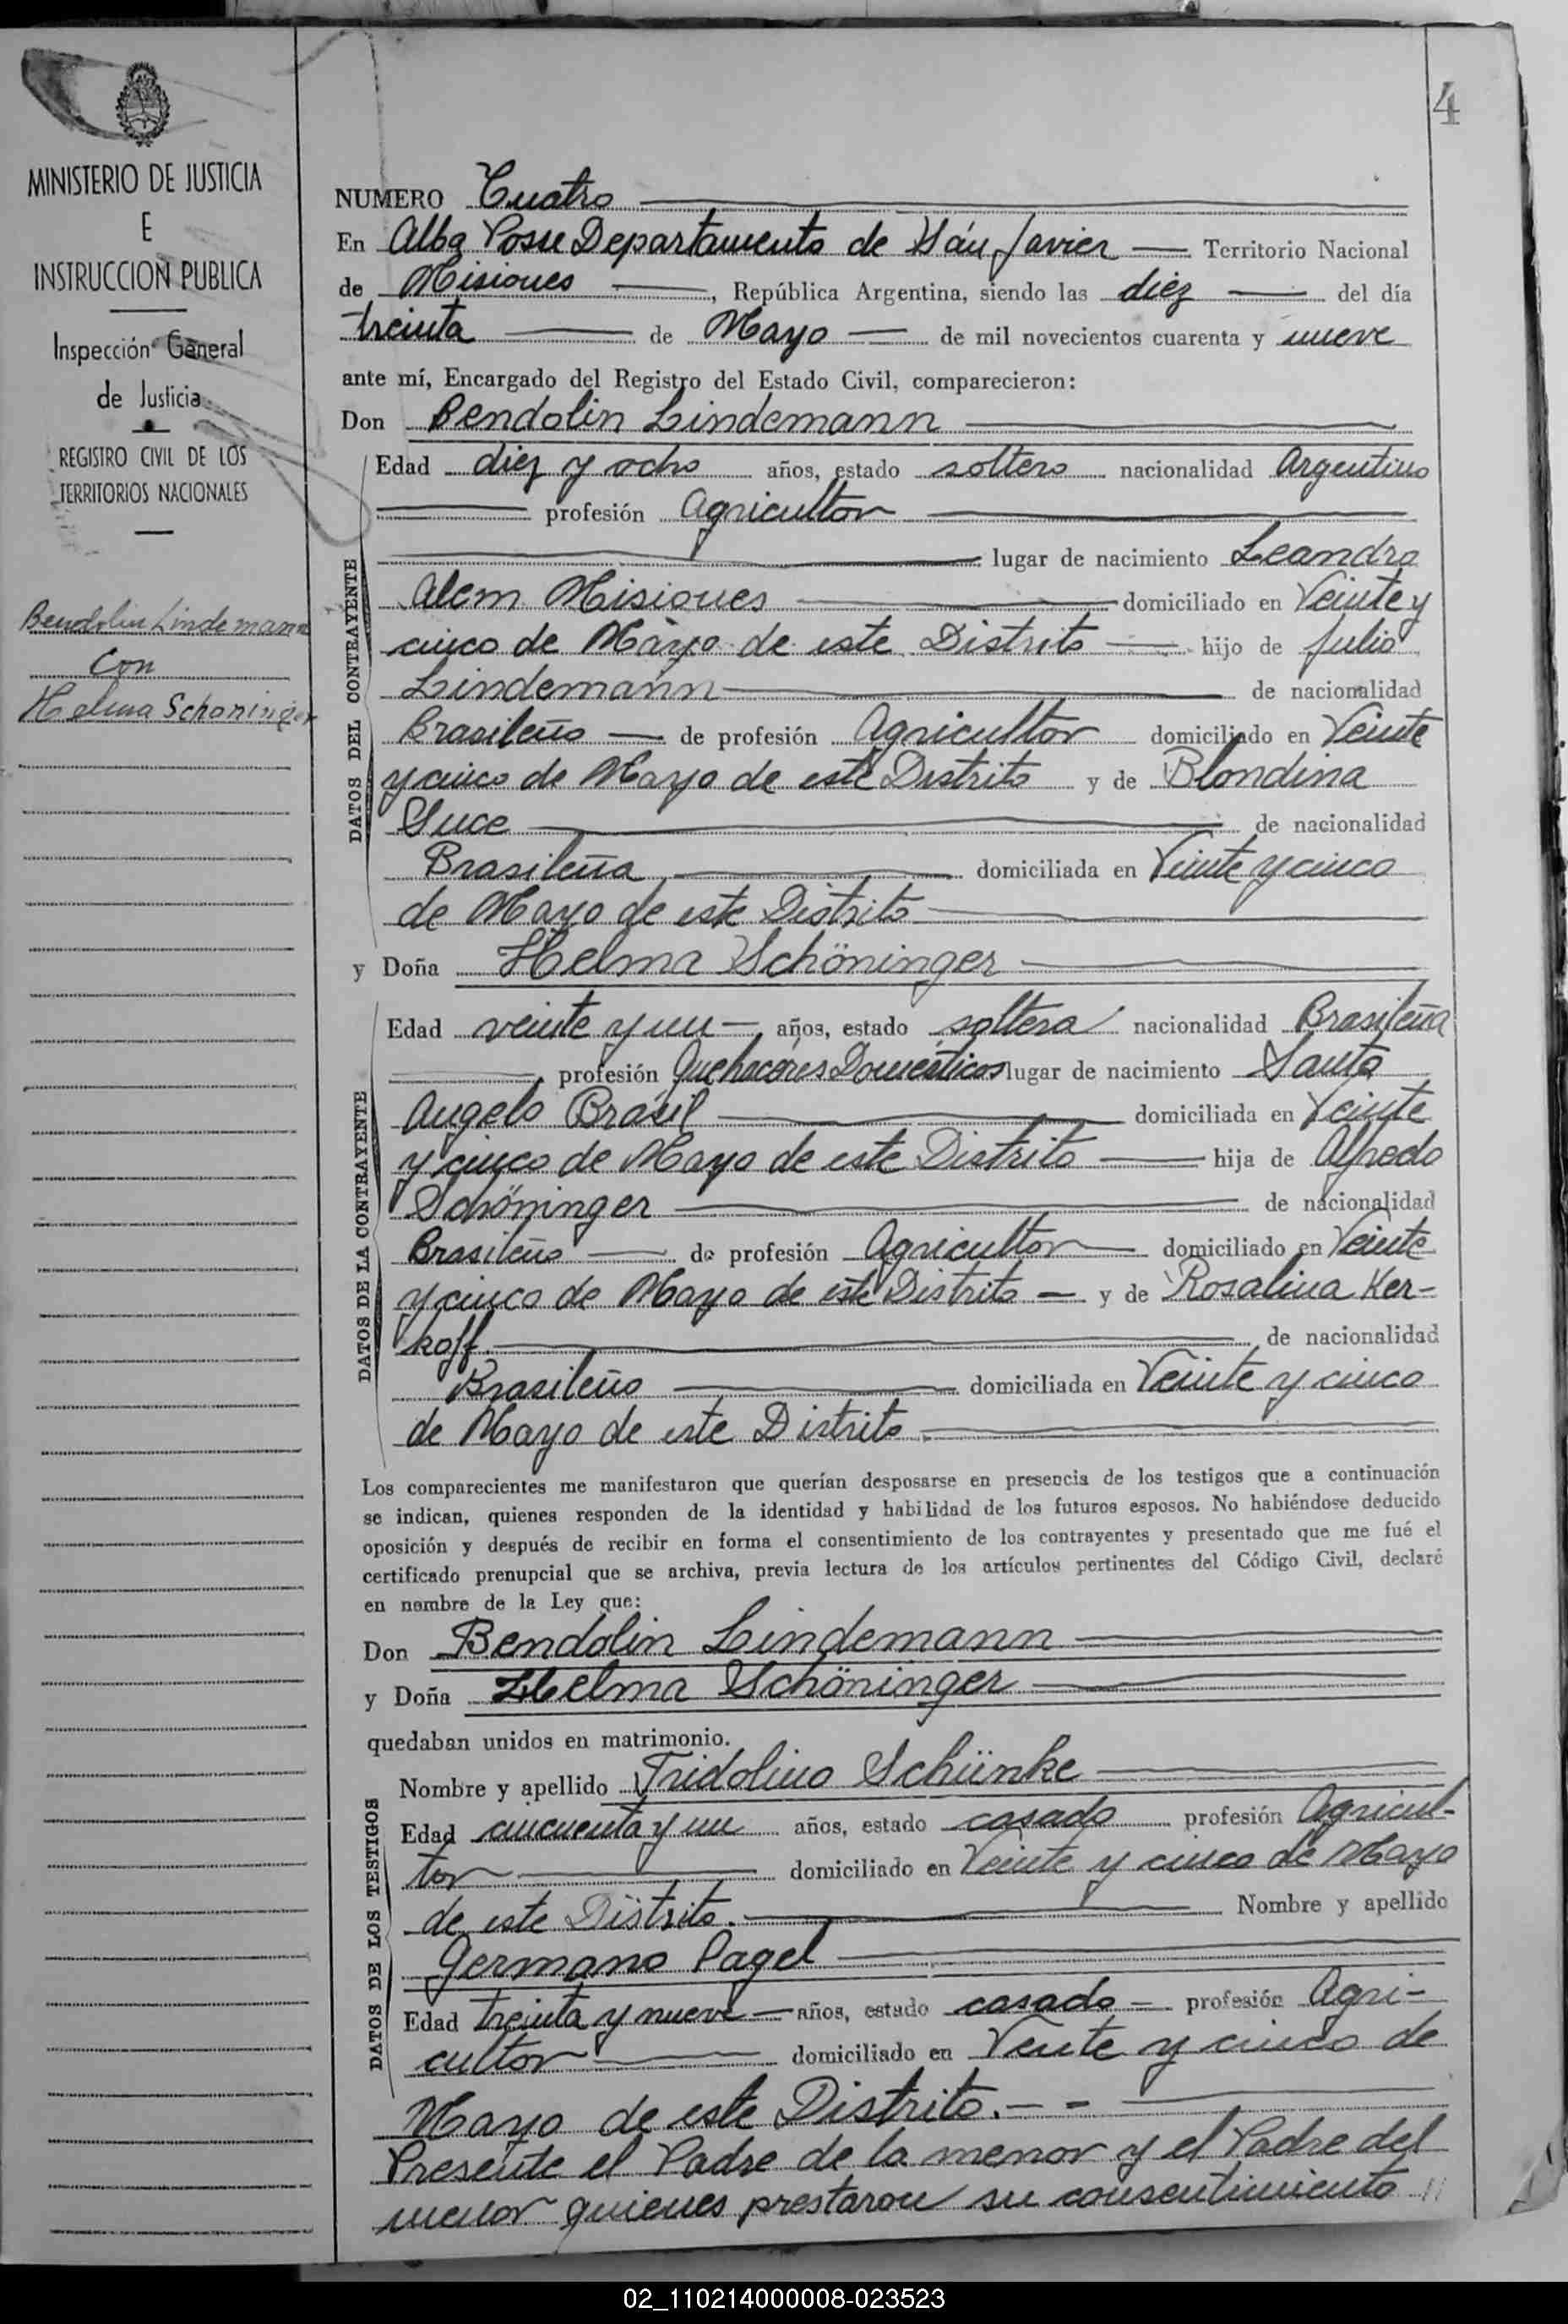 4
MINISTERIO DE JUSTICIA
E
INSTRUCCION PUBLICA
Inspección General
de Justicia
REGISTRO CIVIL DE LOS
TERRITORIOS NACIONALES
Bendolin Lindemann
con
Helma Schoninger
NUMERO Cuatro
En Alba Posse Departamento de San Javier Territorio Nacional
de Misiones, República Argentina, siendo las diez del día
treinta de Mayo de mil novecientos cuarenta y nueve
ante mí, Encargado del Registro del Estado Civil, comparecieron:
Don Bendolin Lindemann
DATOS DEL CONTRAYENTE
Edad diez y ocho años, estado soltero nacionalidad Argentino
profesión Agricultor
lugar de nacimiento Leandro
Alem Misiones domiciliado en Veinte y
cinco de Mayo de este Distrito hijo de Julio
Lindemann de nacionalidad
Brasileño de profesión Agricultor domiciliado en Veinte
y cinco de Mayo de este Distrito y de Blondina
Suce de nacionalidad
Brasileña domiciliada en Veinte y cinco
de Mayo de este Distrito
y Doña Helma Schöninger
DATOS DE LA CONTRAYENTE
Edad veinte y un años, estado soltera nacionalidad Brasileña
profesión Quehaceres Domésticos lugar de nacimiento Santo
Angelo Brasil domiciliada en Veinte
y cinco de Mayo de este Distrito hija de Alfredo
Schöninger de nacionalidad
Brasileño de profesión Agricultor domiciliado en Veinte
y cinco de Mayo de este Distrito y de Rosalina Ker-
koff de nacionalidad
Brasileño domiciliada en Veinte y cinco
de Mayo de este Distrito
Los comparecientes me manifestaron que querían desposarse en presencia de los testigos que a continuación
se indican, quienes responden de la identidad y habilidad de los futuros esposos. No habiéndose deducido
oposición y después de recibir en forma el consentimiento de los contrayentes y presentado que me fué el
certificado prenupcial que se archiva, previa lectura de los artículos pertinentes del Código Civil, declaré
en nombre de la Ley que:
Don Bendolin Lindemann
y Doña Helma Schöninger
quedaban unidos en matrimonio.
DATOS DE LOS TESTIGOS
Nombre y apellido Fridolino Schünke
Edad cincuenta y un años, estado casado profesión Agricul-
tor domiciliado en Veinte y cinco de Mayo
de este Distrito. Nombre y apellido
Germano Pagel
Edad treinta y nueve años, estado casado profesión Agri-
cultor domiciliado en Veinte y cinco de
Mayo de este Distrito.- -
Presente el Padre de la menor y el Padre del
menor quienes prestaron su consentimiento //
02_110214000008-023523